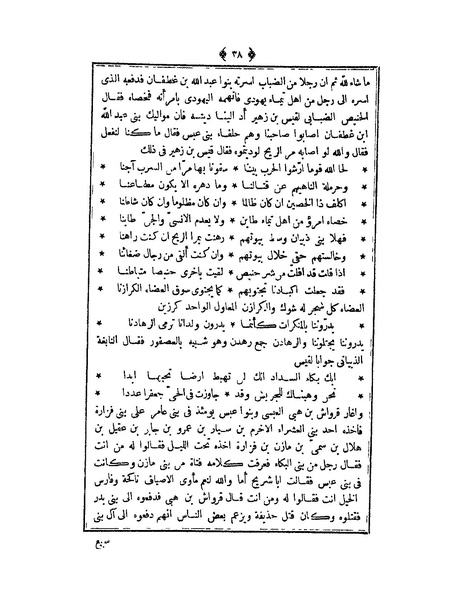 ﴿ ٣٨ ﴾
ما شاء لله ثم ان رجلا من الضباب اسرته بنوا عبد الله بن غطفان فدفعه الذى
اسره الى رجل من اهل تيماء يهودى فاتهمه اليهودى بامرأته فخصاه فقال
الحنبص الضبابى لقيس بن زهير أد الينا ديته فان مواليك بنى عبد الله
ابن غطفان اصابوا صاحبنا وهم حلفاء بنى عبس فقال ما كنا لنفعل
فقال والله لو اصابه مر الريح لوديتموه فقال قيس بن زهير فى ذلك
لحا الله قوما ارّشوا الحرب بيننا * سقونا بها مرّا من الشرب آجنا
وحرملة الناهيهم عن قتالنا * وما دهره الا يكون مطاعنا
اكلف ذا الخصيين ان كان ظالما * وان كان مظلوما وان كان شاطنا
خصاه امرؤ من اهل تيماء طابن * ولا يعدم الانسىّ والجنّ طابنا
فهلا بنى ذبيان وسط بيوتهم * رهنت بمرّ الريح ان كنت راهنا
وخالستهم حتى خلال بيوتهم * وان كنت ألقى من رجال ضغائنا
اذا قلت قد افلتّ من شر حنبص * لقيت باخرى حنبصا متباطنا
فقد جعلت اكبادنا تجتويهم * كما تجتوى سوق العضاه الكرازنا
العضاه كل شجر له شوك والكرازن المعاول الواحد كرزن
يدرّوننا بالمنكرات كأنما * يدرون ولدانا ترمى الرهادنا
يدروننا يختلوننا والرهادن جمع رهدن وهو شبيه بالعصفور فقال النابغة
الذبيانى جوابا لقيس
ابك بكاء السداد انك لن تهبط ارضا تحبها ابدا
نحن وهبناك للجريش وقد * جاوزت فى الحىّ جعفرا عددا
واغار قرواش بن هنى العبسى وبنوا عبس يومئذ فى بنى عامر على بنى فزارة
فاخذه احد بنى العشراء الاخرم بن سيار بن عمرو بن جابر بن عقيل بن
هلال بن سمىّ بن مازن بن فزارة اخذه تحت الليل فقالوا له من انت
فقال رجل من بنى البكاء فعرفت كلامه فتاة من بنى مازن وكانت
فى بنى عبس فقالت ابا شريح أما والله لنعم مأوى الاضياف ناكحة وفارس
الخيل انت فقالوا له ومن انت قال قرواش بن هنى فدفعوه الى بنى بدر
فقتلوه وكان قتل حذيفة ويزعم بعض الناس انهم دفعوه الى آل بنى